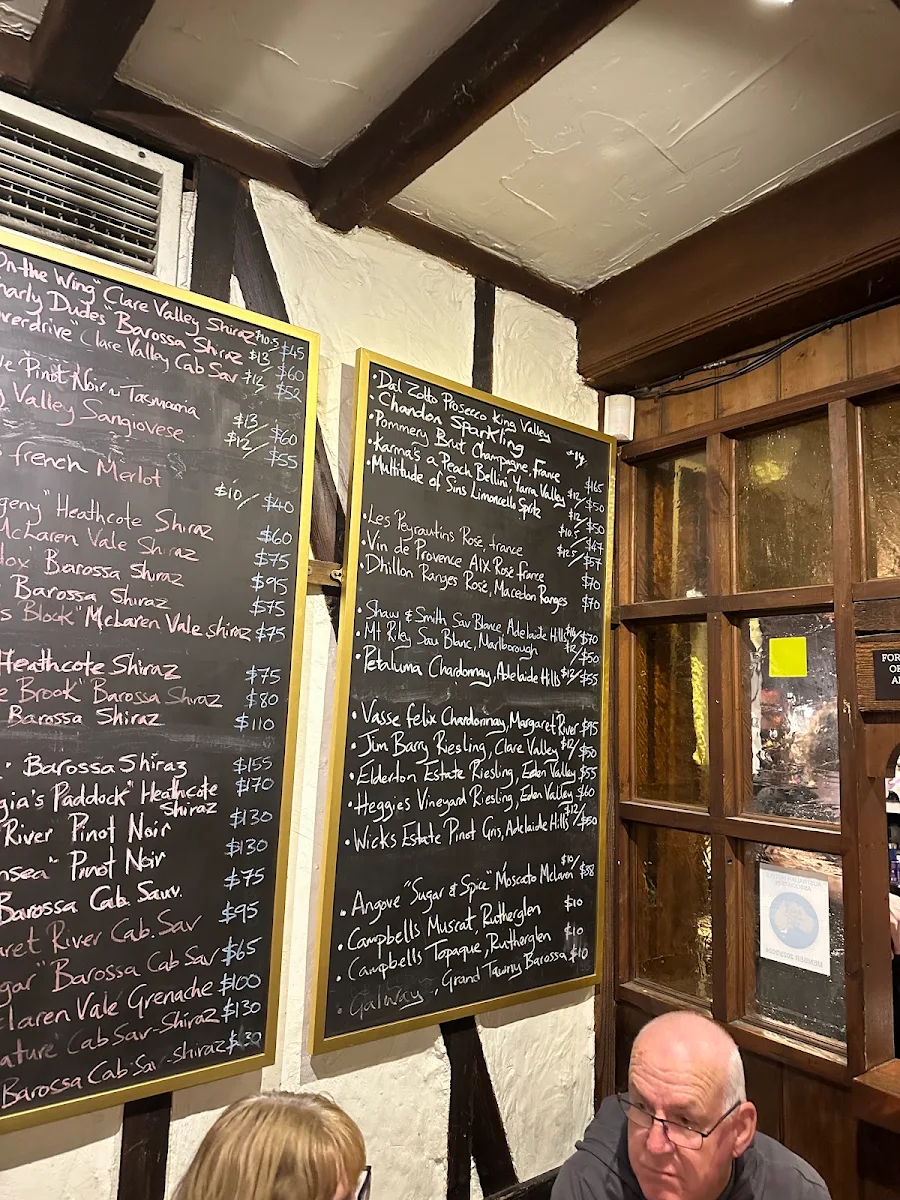 On the Wing" Clare Valley Shiraz $10.5/ $45
Dudes" Barossa Shiraz $13/ $60
"Clare Valley Cab Sav $12/ $52
Pinot Noir ~ Tasmania $13/ $60
Valley Sangiovese $12/ $55
french Merlot $10/ $40
Heathcote Shiraz $60
McLaren Vale Shiraz $75
Barossa Shiraz $95
Barossa Shiraz $75
Block" McLaren Vale Shiraz $75
Heathcote Shiraz $75
Brook" Barossa Shiraz $80
Barossa Shiraz $110
Barossa Shiraz $155
Paddock" Heathcote $170
Shiraz
River Pinot Noir $130
Pinot Noir $130
Barossa Cab. Sauv. $75
River Cab. Sav $95
Barossa Cab Sav $65
Vale Grenache $100
Cab Sav-Shiraz $130
Barossa Cab Sav-Shiraz
• Dal Zotto Prosecco King Valley
• Chandon Sparkling
• Pommery Brut Champagne, France $165
• Karma's a Peach Bellini, Yarra Valley $12/ $50
• Multitude of Sins Limoncello Spritz $12/ $50
• Les Peyrautins Rosé, france $10.5/ $47
• Vin de Provence AIX Rosé france $12.5/ $57
• Dhillon Ranges Rosé, Macedon Ranges $70
$70
• Shaw & Smith Sav Blanc, Adelaide Hills $70
• Mt Riley Sauv Blanc, Marlborough $12/ $50
• Petaluma Chardonnay, Adelaide Hills $13/ $55
• Vasse felix Chardonnay, Margaret River $95
• Jim Barry Riesling, Clare Valley $12/ $50
• Elderton Estate Riesling, Eden Valley $55
• Heggies Vineyard Riesling, Eden Valley $60
• Wicks Estate Pinot Gris, Adelaide Hills $12/ $50
• Angove "Sugar & Spice" Moscato McLaren $10/ $38
• Campbells Muscat, Rutherglen $10
• Campbells Topaque, Rutherglen $10
• Galway, Grand Tawny Barossa $10
FOR